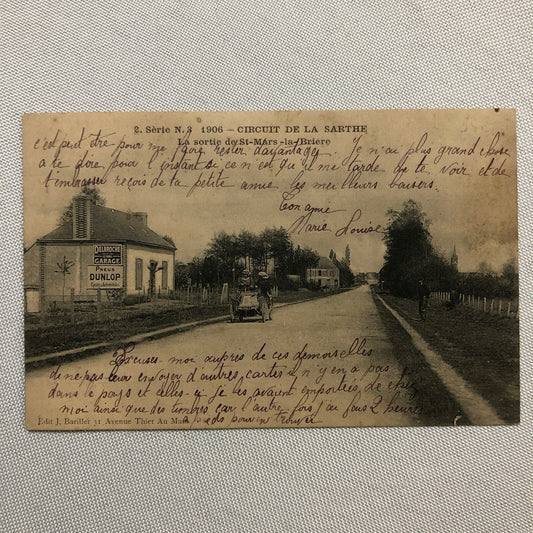 2. Série N. 3 1906 — CIRCUIT DE LA SARTHE
La sortie de St-Mars-la-Brière
c'est peut être pour me faire rester davantages. Je n'ai plus grand chose
a te dire pour l'instant si ce n'est qu'il me tarde de te voir et de
t'embrasser reçois de ta petite amie les meilleurs baisers.
Ton amie
Marie Louise
DELAROCHE
GARAGE
PNEUS
DUNLOP
Excuses-moi auprès de ces demoiselles
de ne pas leur envoyer d'autres cartes il n'y en a pas
dans le pays et elles-y je les avaient emportées de chez
moi ainsi que des timbres car l'autre fois j'ai fais 2 heures
pouvoir trouver
Edit J. Bariller 31 Avenue Thier Au Mans